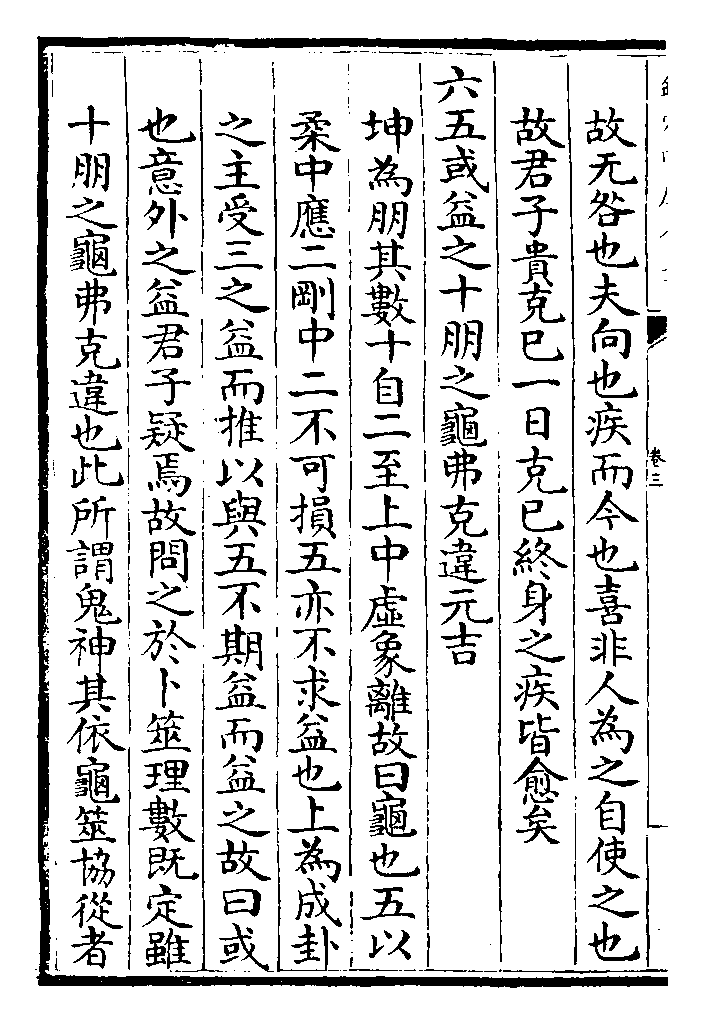 故无咎也夫向也疾而今也喜非人為之自使之也
故君子貴克已一日克已終身之疾皆愈矣
六五或益之十朋之龜弗克違元吉
坤為朋其數十自二至上中虛象離故曰龜也五以
柔中應二剛中二不可損五亦不求益也上為成卦
之主受三之益而推以與五不期益而益之故曰或
也意外之益君子疑焉故問之於卜筮理數既定雖
十朋之龜弗克違也此所謂鬼神其依龜筮協從者
卷三